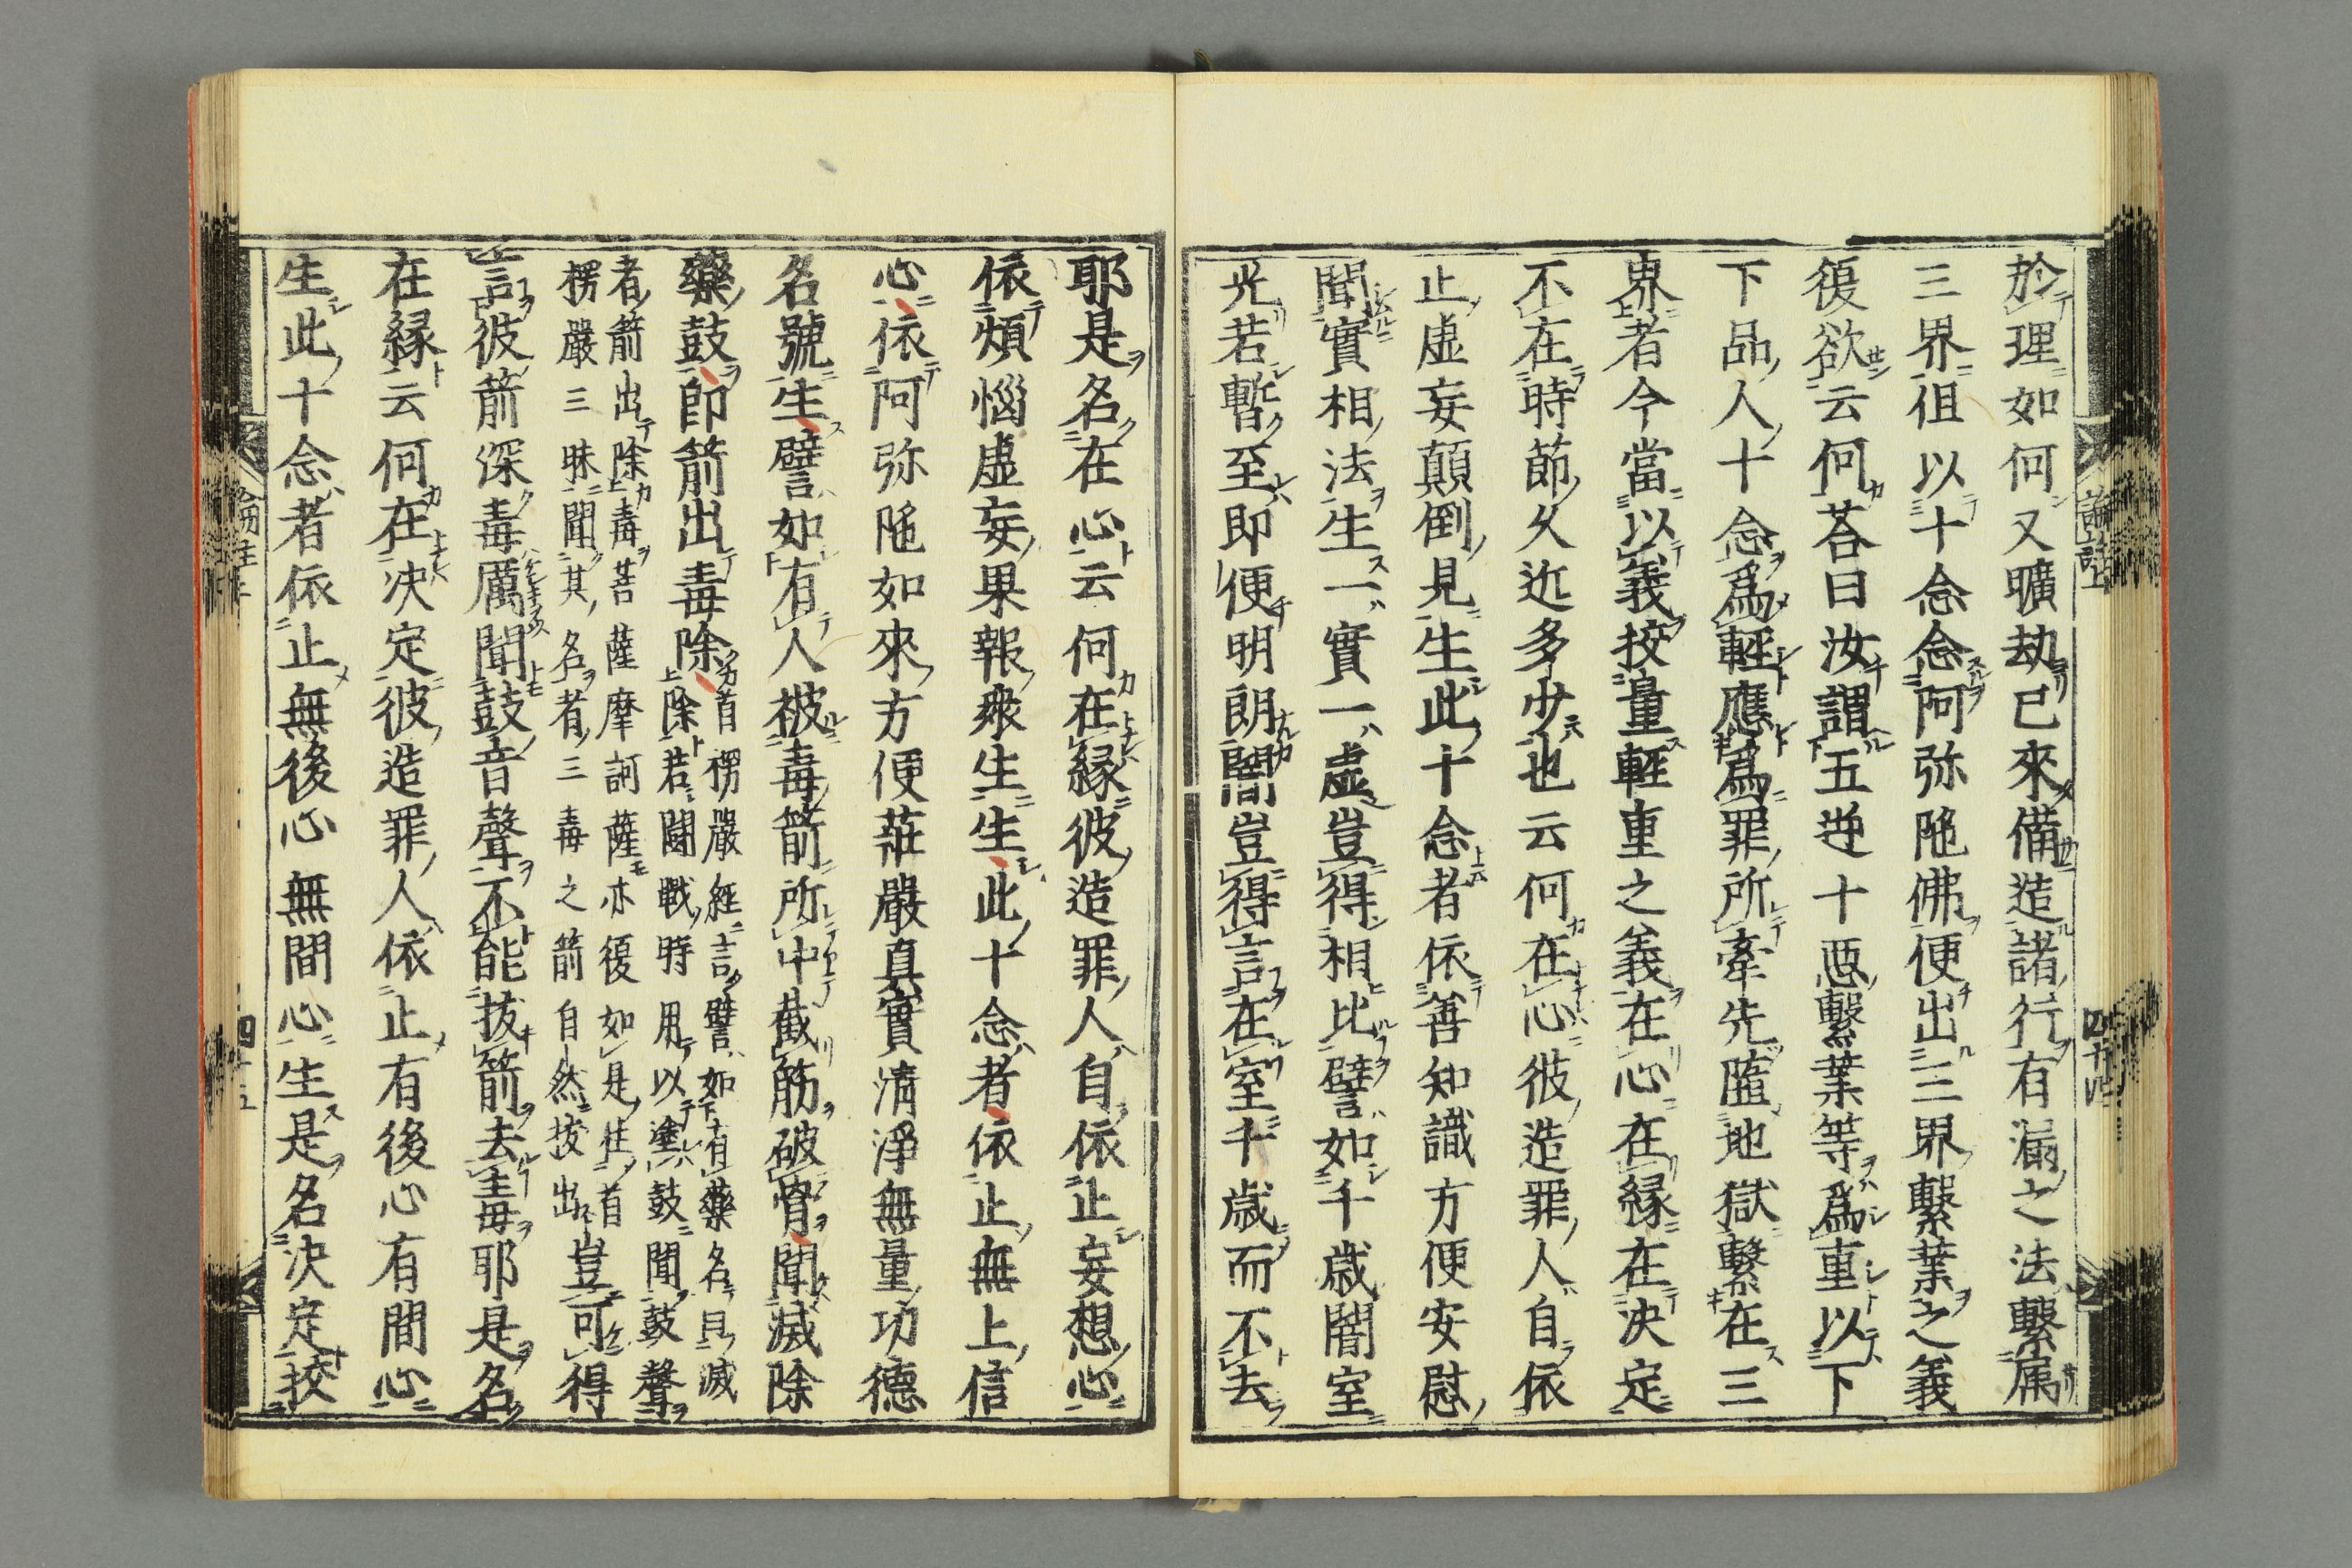 於理如何又曠劫已來備造諸行有漏之法繫属
三界徂以十念念阿弥陁佛便出三界繫業之義
復欲云何荅曰汝謂五逆十惡繫業等爲重以下
下品人十念爲輕應爲罪所牽先墮地獄繫在三
界者今當以義挍量輕重之義在心在緣在决定
不在時節久近多少也云何在心彼造罪人自依
止虛妄顛倒見生此十念者依善知識方便安慰
聞實相法生一實一虛豈得相比譬如千歲闇室
光若暫至即便明朗闇豈得言在室千歲而不去
耶是名在心云何在緣彼造罪人自依止妄想心
依煩惱虛妄果報衆生生此十念者依止無上信
心依阿弥陁如來方便莊嚴真實清淨無量功德
名號生譬如有人被毒箭所中截筋破骨聞滅除
藥鼓即箭出毒除首楞嚴經言譬如有藥名曰滅
除若鬪戰時用以塗鼓聞鼓聲
者箭出除毒菩薩摩訶薩亦復如是住首
楞嚴三昧聞其名者三毒之箭自然拔出豈可得
言彼箭深毒厲聞鼓音聲不能拔箭去毒耶是名
在緣云何在决定彼造罪人依止有後心有間心
生此十念者依止無後心無間心生是名决定挍
論註
四十五